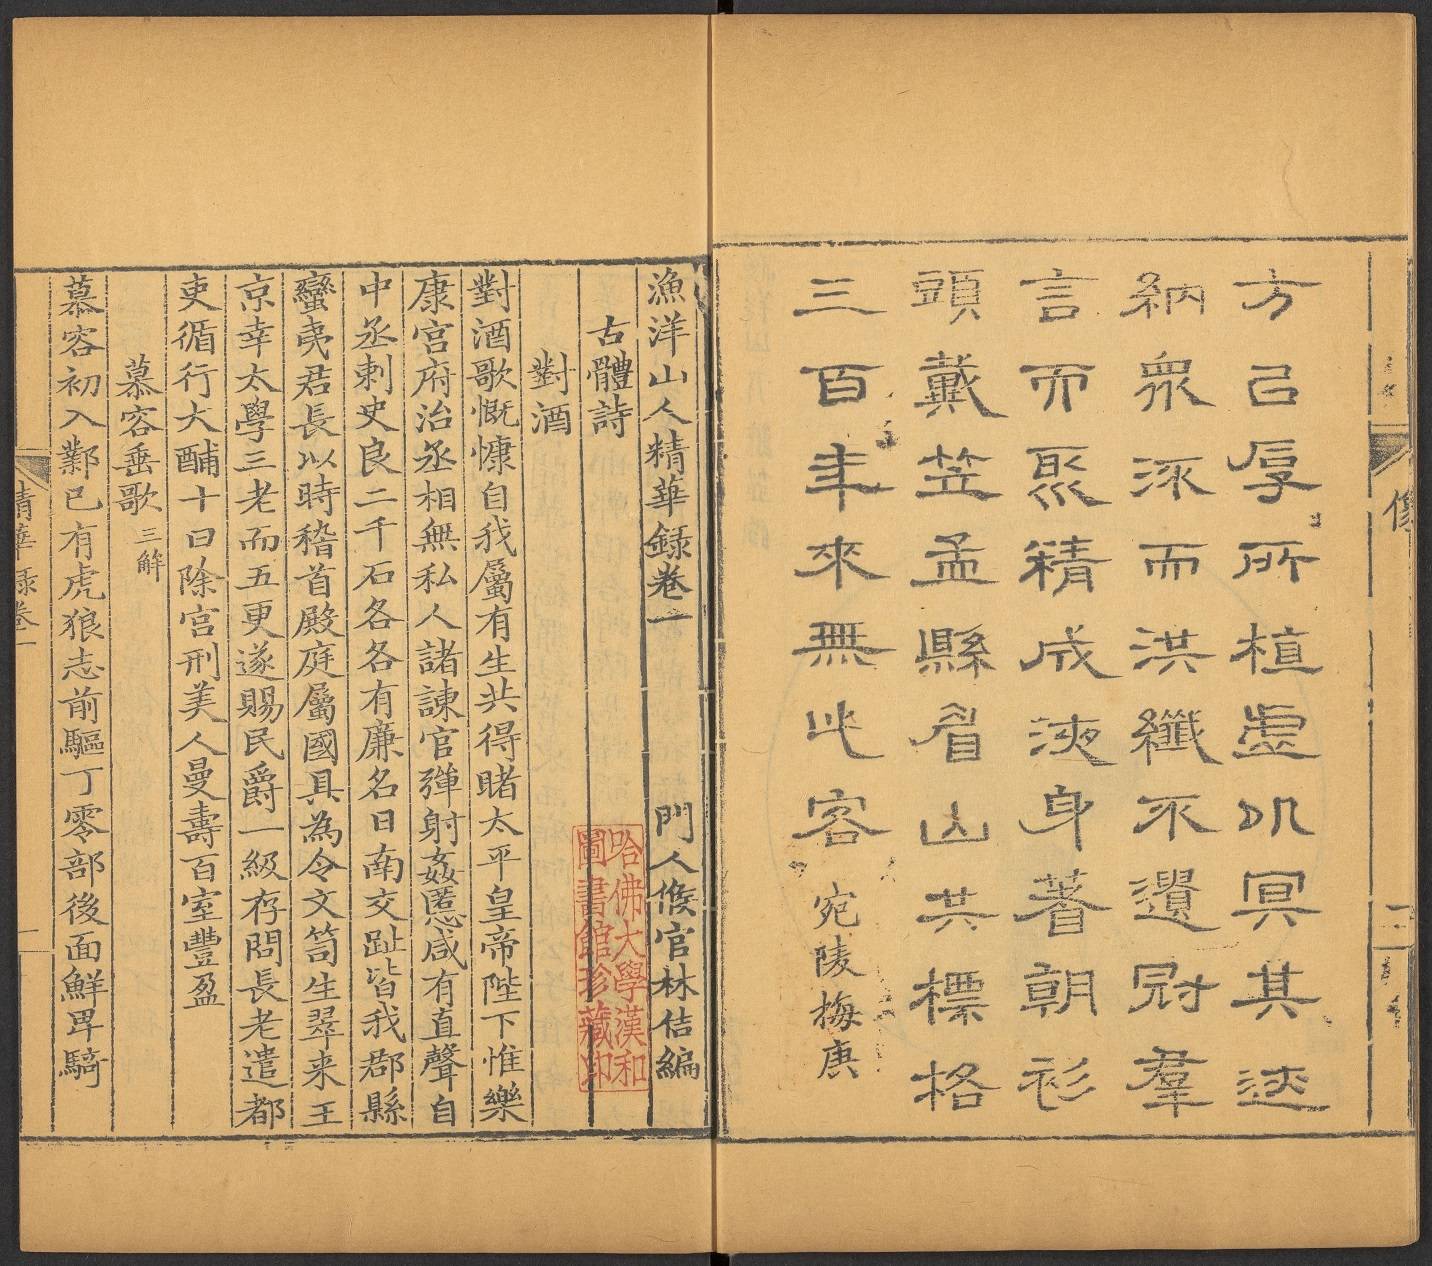 像
二
方口厚所植虛叺冥其迹
納衆沠而洪纖不遺冠羣
言而聚精成浹身著朝衫
頭戴笠孟縣眉山共標格
三百年來無此客 宛陵梅庚
漁洋山人精華録卷一 門人候官林佶編
古體詩
對酒
對酒歌慨慷自我屬有生共得睹太平皇帝陛下惟樂
康宮府治丞相無私人諸諫官彈射姦慝咸有直聲自
中丞刺史良二千石各各有廉名日南交趾皆我郡縣
蠻夷君長以時稽首殿庭屬國具為令文笥生翠来王
京幸太學三老而五更遂賜民爵一級存問長老遣都
吏循行大酺十日除宮刑美人曼壽百室豐盈
慕容垂歌 三解
慕容初入鄴已有虎狼志前驅丁零部後面鮮卑騎
精華録卷一
一
哈佛大學漢和
圖書館珍藏印